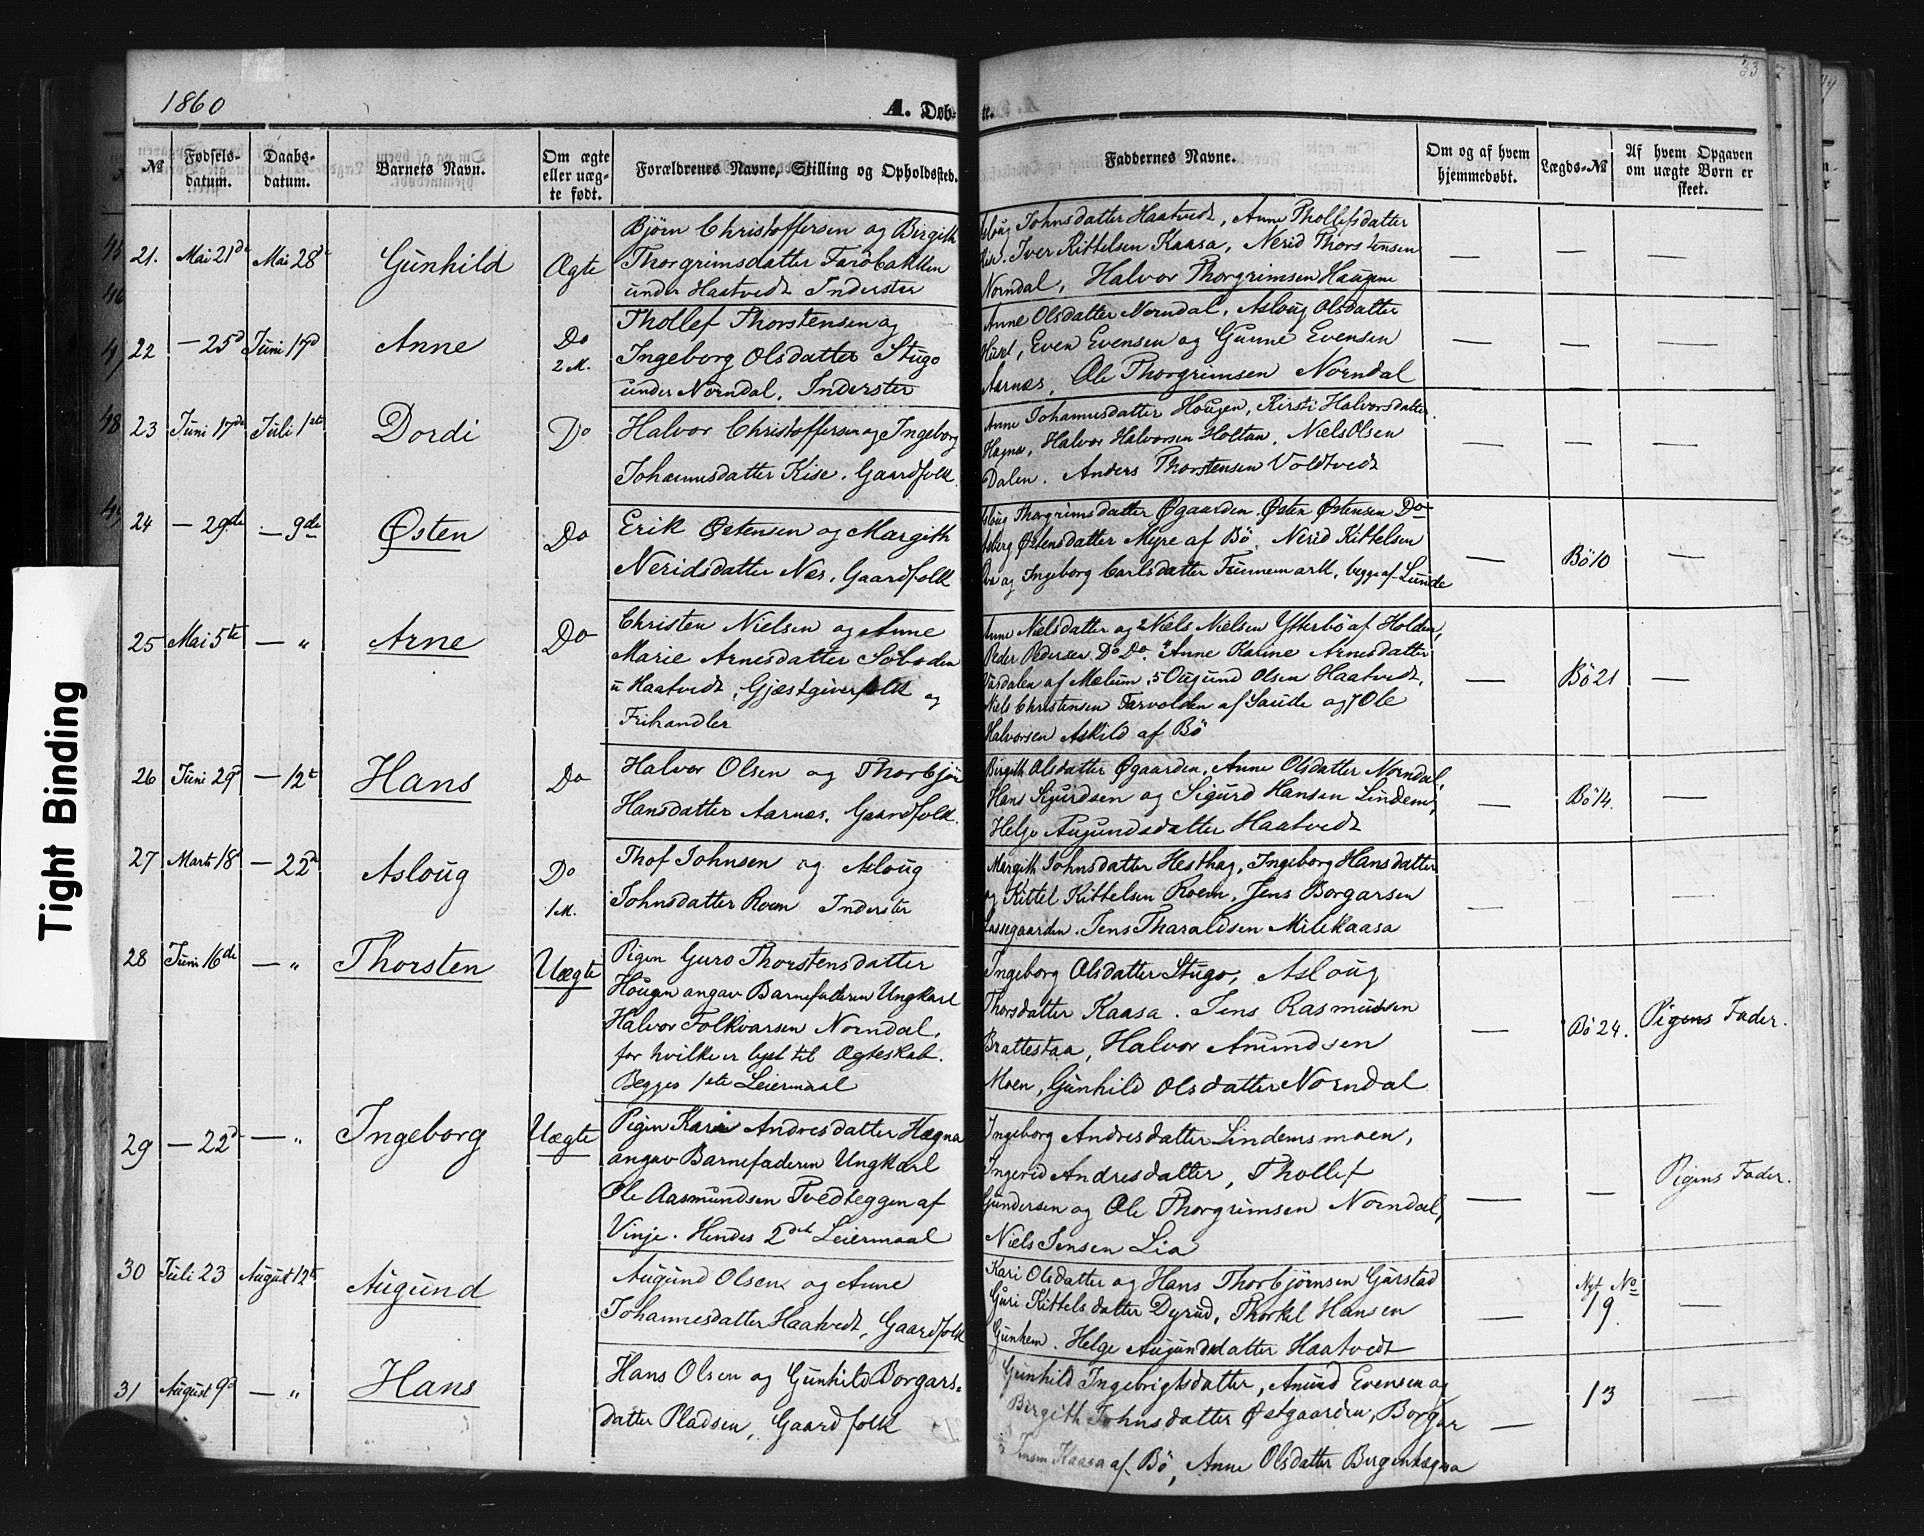 1860
A. Døb-
te.
33
№
Fødsels-
datum.
Daabs-
datum.
Barnets Navn.
Om ægte
eller uæg-
te født.
Forældrenes Navne, Stilling og Opholdssted.
Faddernes Navne.
Om og af hvem
hjemmedøbt.
Lægds-№
Af hvem Opgaven
om uægte Børn er
skeet.
21. Mai 21de Mai 28de Gunhild Ægte
Bjørn Christoffersen og Birgith
Thorgrimsdatter Farobakken
under Haatvedt Inderster
Johnsdatter Haatvedt, Anne Thollefsdatter
Kise. Iver Kittelsen Kaasa, Nerid Thorstensen
Norndal, Halvor Thorgrimsen Haugene
— — —
22 — 25d Juni 17d Anne Do
2 M.
Thollef Thorstensen og
Ingeborg Olsdatter Stugo
under Norndal, Inderster
Anne Olsdatter Norndal, Asloug Olsdatter
Even Evensen og Gunne Evensen
Aarnæs, Ole Thorgrimsen Norndal
— — —
23 Juni 17de Juli 1ste Dordi Do
Halvor Christoffersen og Ingeborg
Johannesdatter Kise. Gaardfolk.
Anne Johannesdatter Hougen, Kirsti Halvorsdatter
Hagna, Halvor Halvorsen Holtan, Niels Olsen
Dalen. Anders Thorstensen Voldtvedt
— — —
24 — 29de — 9de Østen Do
Erik Østensen og Margith
Neridsdatter Næs, Gaardfolk
Thorgrimsdatter Øgaarden, Østen Østensen Do
Østensdatter Myre af Bø, Nerid Kittelsen
og Ingeborg Carlsdatter Funnemark, begge af Lunde
— Bø 10 —
25 Mai 5te — " Arne Do
Christen Nielsen og Anne
Marie Arnesdatter Soboden
u Haatvedt, Gjæstgiverfolk og
Frihandler
Anne Nielsdatter og 2 Niels Nielsen Ytterbø af Holden,
Peder Pedersen Do Do. 4 Anne Karine Arnesdatter
Vasdalen af Mælum, 5 Ougund Olsen Haatvedt,
Niels Christensen Tarvolden af Saude og 7 Ole
Halvorsen Askild af Bø
— Bø 21 —
26 Juni 29d — 12te Hans Do
Halvor Olsen og Thorbjør
Hansdatter Aarnæs, Gaardfolk.
Birgith Olsdatter Øgaarden, Anne Olsdatter Norndal,
Hans Sigurdsen og Sigurd Hansen Lindem,
Helje Augundsdatter Haatvedt
— Bø 14. —
27 Marts 18d — 22de Asloug Do
1 M.
Thof Johnsen og Asloug
Johnsdatter Roem Inderster
Margith Johnsdatter Hesthag, Ingeborg Hansdatter
og Kittel Kittelsen Roem, Jens Borgarsen
Jens Tharaldsen Milekaasa
— — —
28 Juni 16de — " Thorsten Uægte
Pigen Guro Thorstensdatter
Hougen angav Barnefaderen Ungkarl
Halvor Folkvarsen Norndal,
for hvilke er lyst til Ægteskab.
Begges 1ste Leiermaal
Ingeborg Olsdatter Stugo, Asloug
Thorsdatter Kaasa. Jens Rasmussen
Brattestaa, Halvor Anundsen
Moen, Gunhild Olsdatter Norndal
— Bø 24. Pigens Fader.
29 — 22d — " Ingeborg Uægte
Pigen Kari Andresdatter Hægna
angav Barnefaderen Ungkarl
Ole Aasmundsen Tvedteggen af
Vinje. Hendes 2det Leiermaal
Ingeborg Andresdatter Lindemsmoen,
Ingerid Andresdatter, Thollef
Gundersen og Ole Thorgrimsen Norndal,
Niels Jensen Lia
— — Pigens Fader.
30 Juli 23 August 12te Augund
Augund Olsen og Anne
Johannesdatter Haatvedt, Gaardfolk
Kari Olsdatter og Hans Thorbjørnsen Garstad
Guri Kittelsdatter Dyrud, Thorkel Hansen
Gunhem. Helge Augundsdatter Haatvedt
— Nyt No
19. —
31 August 9d — " Hans
Hans Olsen og Gunhild Borgars-
datter Pladsen, Gaardfolk
Gunhild Ingebrigtsdatter, Anund Evensen og
Birgith Johnsdatter Østgaarden, Borgar
Jensen Kaasa af Bø, Anne Olsdatter Bergenhægna
— 13 —
Tight Binding